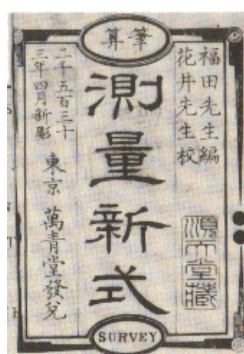 筆算
福田先生編
花井先生校
順天堂藏
測量新式
二千五百三十
三年四月新彫
東京 萬青堂發兌
SURVEY